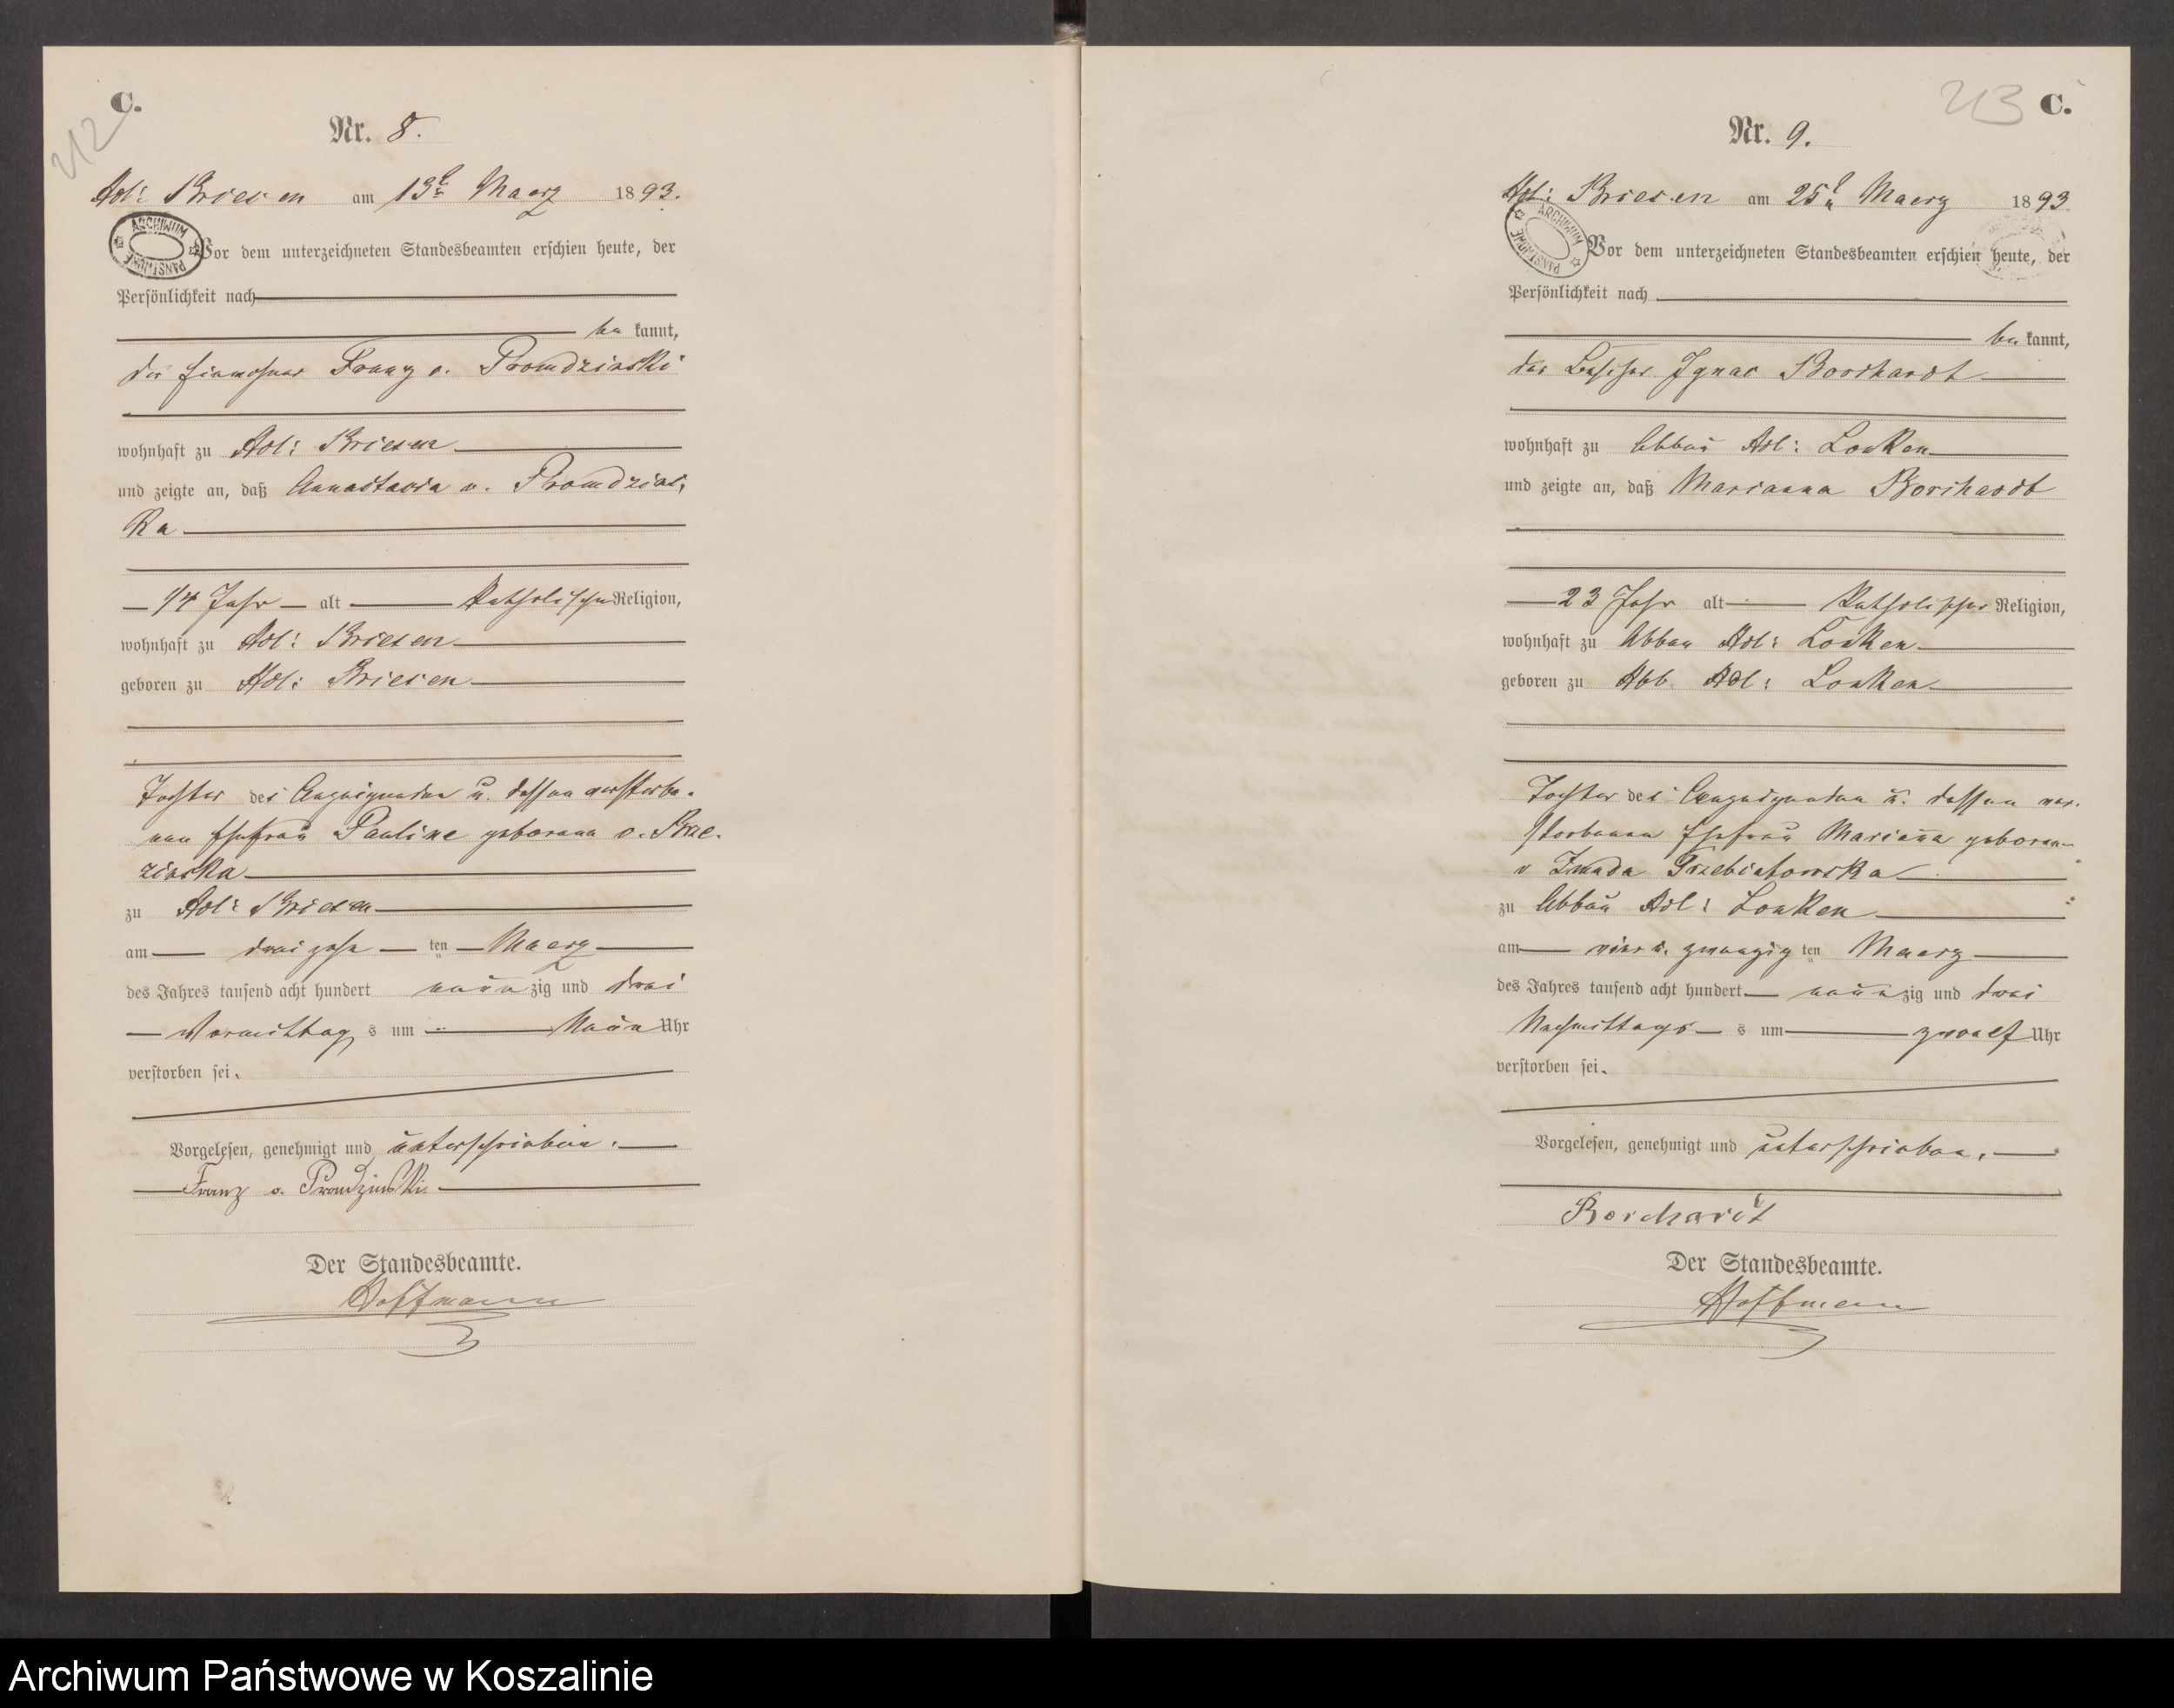 C.
212
Nr. 8.
Adl: Briesen am 13t Maerz 1893.
ARCHIWUM PAŃSTWOWE
Vor dem unterzeichneten Standesbeamten erschien heute, der
Persönlichkeit nach
be kannt,
der Einwohner Franz v. Prondzinski
wohnhaft zu Adl: Briesen
und zeigte an, daß Annastasia v. Prondzins,
ka
14 Jahr alt katholischer Religion,
wohnhaft zu Adl: Briesen
geboren zu Adl: Briesen
Tochter des Anzeigenden u. dessen verstorbe-
nen Ehefrau Pauline geborenen v.
zinska
zu Adl: Briesen
am dreizehn ten Maerz
des Jahres tausend acht hundert neunzig und drei
Vormittag s um Neun Uhr
verstorben sei.
Vorgelesen, genehmigt und unterschrieben.
Franz v. Prondzinski.
Der Standesbeamte.
Hoffmann
213 C.
Nr. 9.
Adl: Briesen am 25t Maerz 1893
ARCHIWUM PAŃSTWOWE
Vor dem unterzeichneten Standesbeamten erschien heute, der
Persönlichkeit nach
be kannt,
der Besitzer Ignac Borchardt
wohnhaft zu Abbau Adl: Lonken
und zeigte an, daß Marianna Borchardt
23 Jahr alt katholischer Religion,
wohnhaft zu Abbau Adl: Lonken
geboren zu Abb. Adl: Lonken
Tochter des Anzeigenden u. dessen ver-
storbenen Ehefrau Marianna geborenen
v Zmuda Trzebiatowska
zu Abbau Adl: Lonken
am vier u. zwanzig ten Maerz
des Jahres tausend acht hundert neunzig und drei
Nachmittags s um zwoelf Uhr
verstorben sei.
Vorgelesen, genehmigt und unterschrieben.
Borchardt
Der Standesbeamte.
Hoffmann
Archiwum Państwowe w Koszalinie